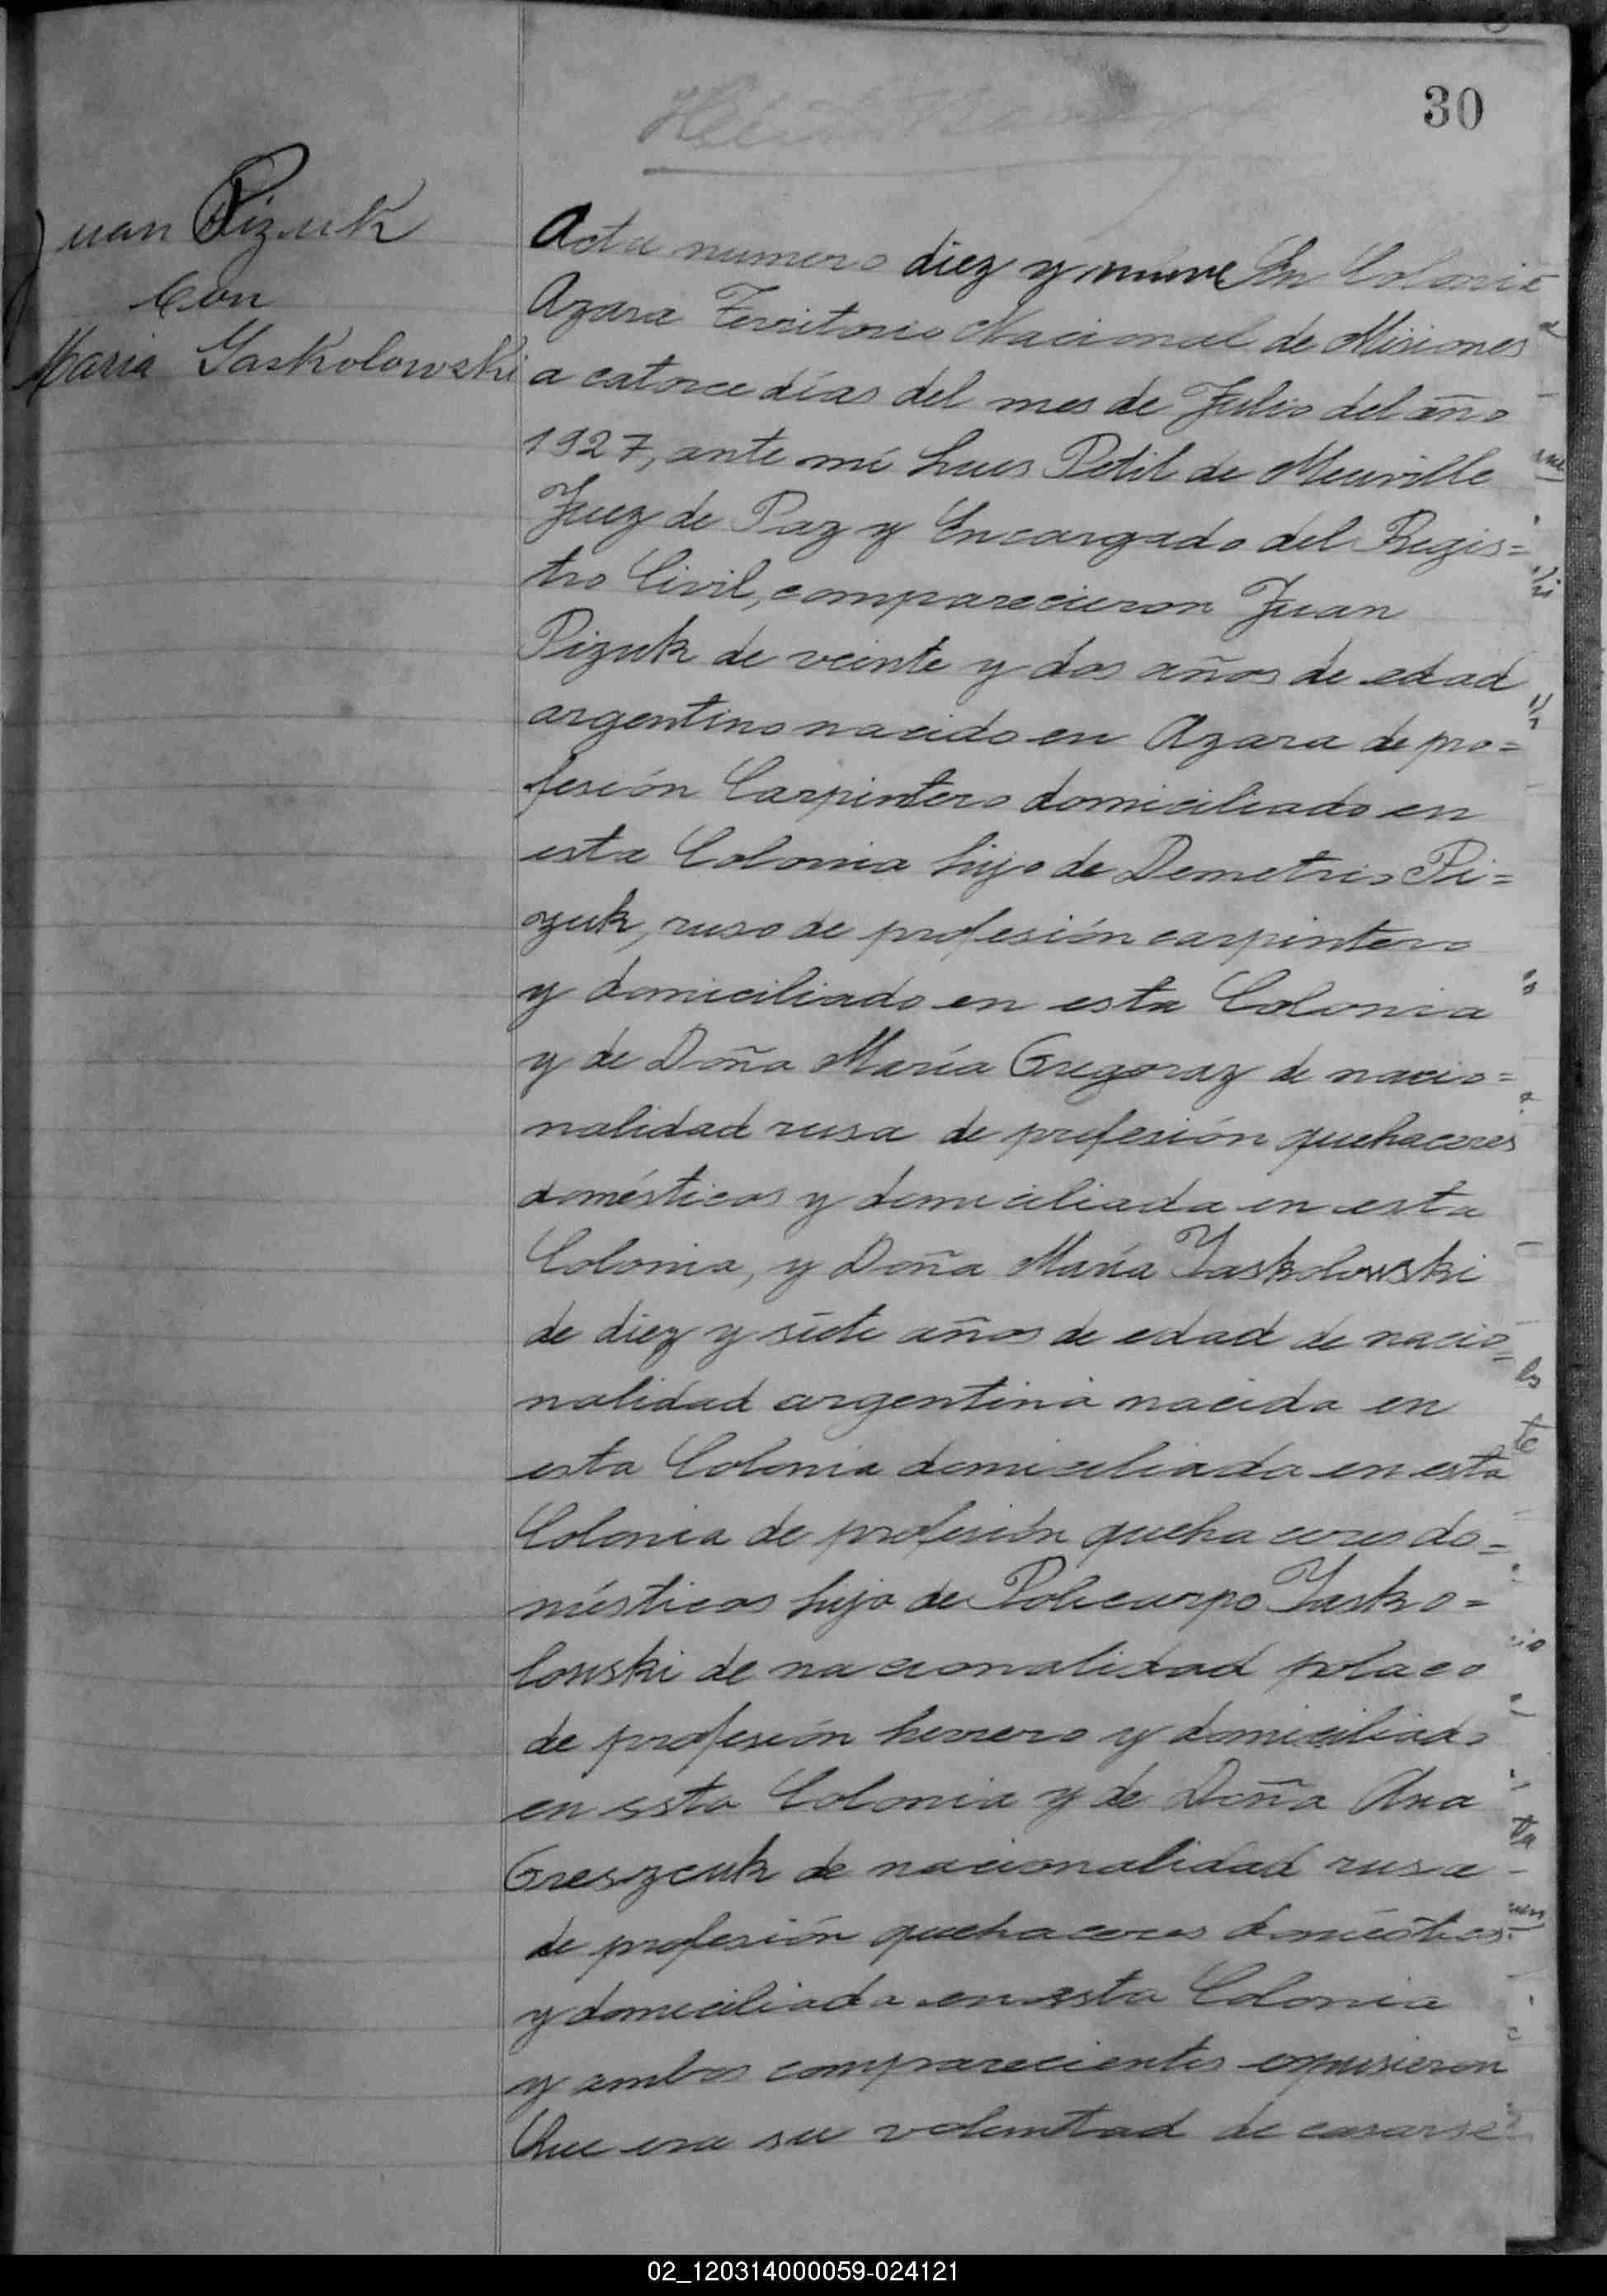 30
Juan Pizuk
Con
Maria Yaskolowski
Acta numero diez y nueve En Colonia
Azara Territorio Nacional de Misiones
a catorce días del mes de Julio del año
1927, ante mi Luis Petit de Meurville
Juez de Paz y Encargado del Regis=
tro Civil, comparecieron Juan
Pizuk de veinte y dos años de edad
argentino nacido en Azara de pro=
fesión Carpintero domiciliado en
esta Colonia hijo de Demetrio Pi=
zuk, ruso de profesión carpintero
y domiciliado en esta Colonia
y de Doña María Gregoraz de nacio=
nalidad rusa de profesión quehaceres
domésticos y domiciliada en esta
Colonia, y Doña María Yaskolowski
de diez y siete años de edad de nacio=
nalidad argentina nacida en
esta Colonia domiciliada en esta
Colonia de profesión quehaceres do=
mésticos hija de Policarpo Yasko=
lowski de nacionalidad polaco
de profesión herrero y domiciliado
en esta Colonia y de Doña Ana
Greszcuk de nacionalidad rusa
de profesión quehaceres domésticos
y domiciliada en esta Colonia
y ambos comparecientes expusieron
Que era su voluntad de casarse
02_120314000059-024121